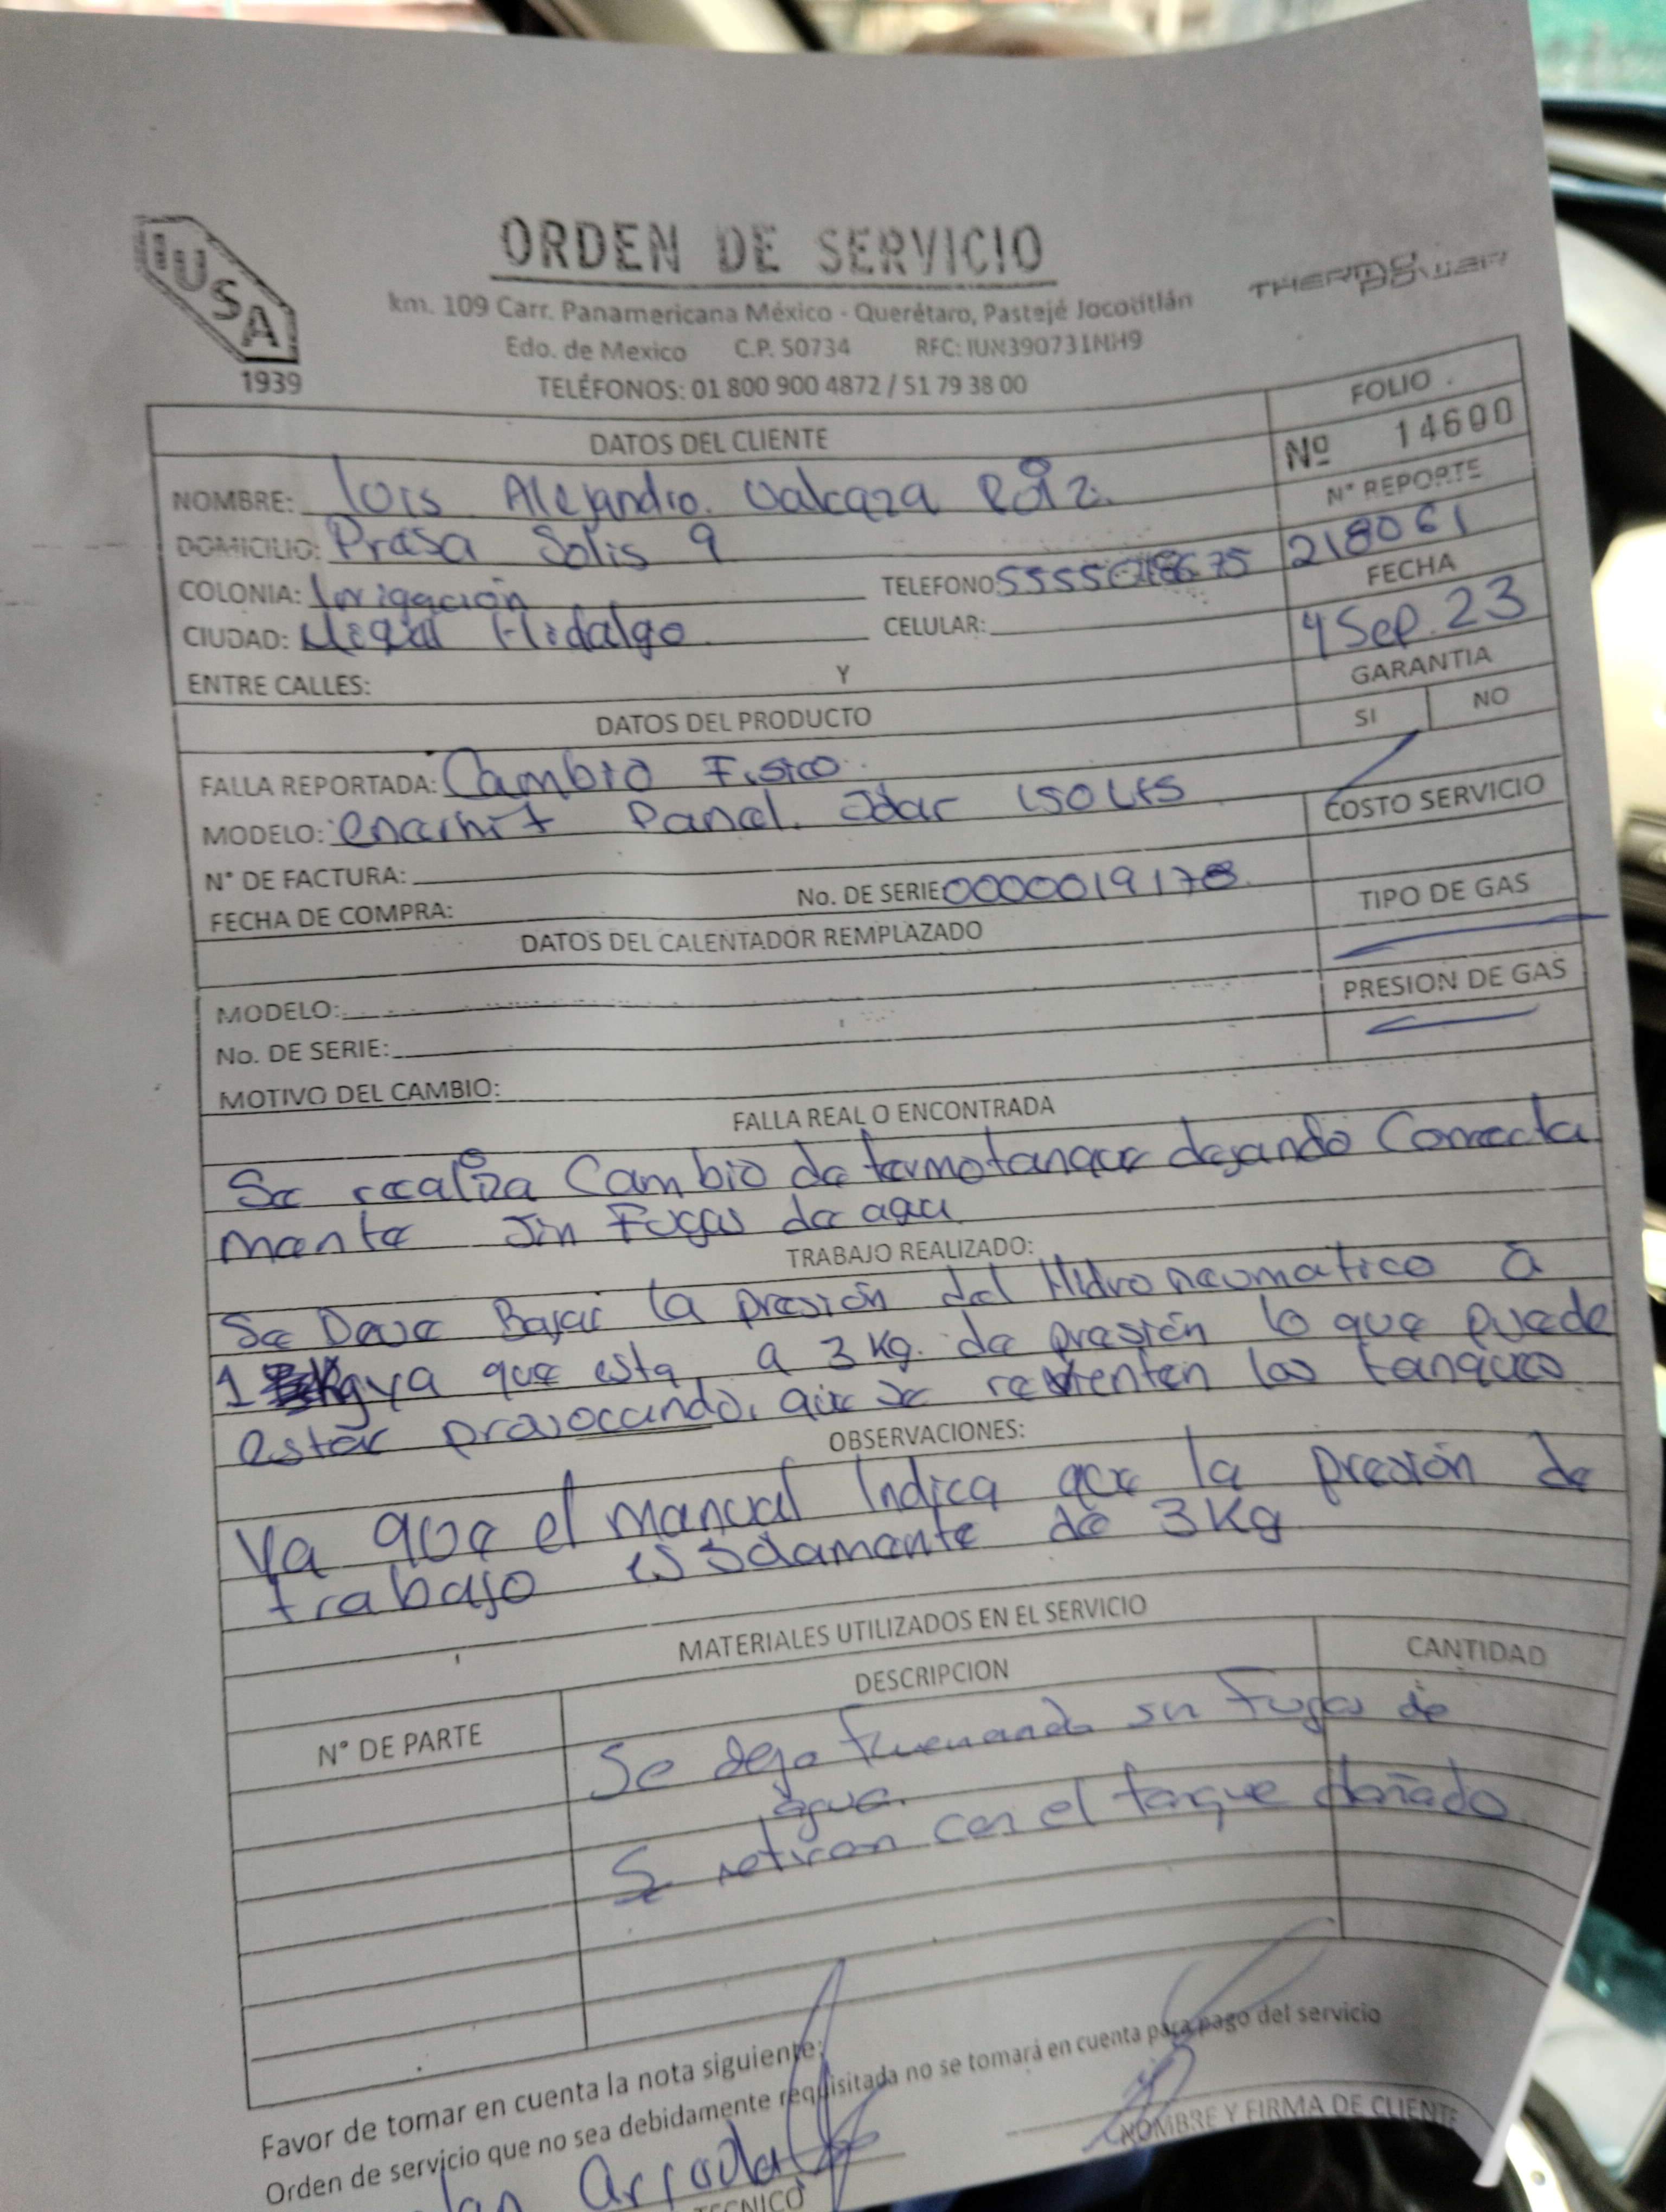 IUSA
1939
ORDEN DE SERVICIO
THERMO POWER
km. 109 Carr. Panamericana México - Querétaro, Pastejé Jocotitlán
Edo. de Mexico C.P. 50734 RFC: IUN390731NH9
TELÉFONOS: 01 800 900 4872 / 51 79 38 00
DATOS DEL CLIENTE
FOLIO
Nº 14600
NOMBRE: Luis Alejandro. Valcaza
N° REPORTE
218061
DOMICILIO: Presa Solis 9
COLONIA: Irrigación
TELEFONO:
FECHA
4 Sep. 23
CIUDAD: Hidalgo
CELULAR:
ENTRE CALLES: Y
GARANTIA
SI NO
DATOS DEL PRODUCTO
FALLA REPORTADA: Cambio Fisico
MODELO: Panel. Solar 150 Lts
COSTO SERVICIO
N° DE FACTURA:
No. DE SERIE 0000019178
FECHA DE COMPRA:
TIPO DE GAS
DATOS DEL CALENTADOR REMPLAZADO
MODELO:
PRESION DE GAS
No. DE SERIE:
MOTIVO DEL CAMBIO:
FALLA REAL O ENCONTRADA
Se realiza Cambio de termotanque dejando Correcta
mente Sin Fugas de agua
TRABAJO REALIZADO:
Se Deve Bajar la presión del Hidroneumatico a
1 Kg ya que esta a 3 Kg. de presión lo que puede
estar provocando, que se revienten los tanques
OBSERVACIONES:
Ya que el manual Indica que la presión de
trabajo es Solamente de 3 Kg
MATERIALES UTILIZADOS EN EL SERVICIO
N° DE PARTE
DESCRIPCION
CANTIDAD
Se deja sin Fugas de
agua.
Se retiran con el tanque dañado
Favor de tomar en cuenta la nota siguiente:
Orden de servicio que no sea debidamente requisitada no se tomará en cuenta para pago del servicio
NOMBRE Y FIRMA DE CLIENTE
TECNICO